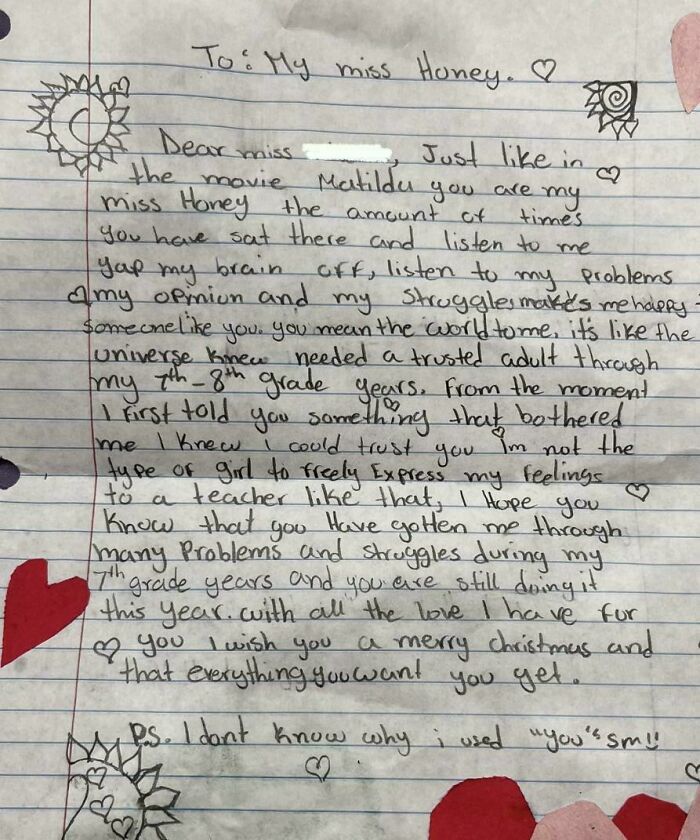 To: My miss Honey.
Dear miss , Just like in
the movie Matilda you are my
miss Honey the amount of times
you have sat there and listen to me
yap my brain off, listen to my problems
my opinion and my struggles makes me happy -
someone like you. you mean the world to me. it's like the
universe knew needed a trusted adult through
my 7th - 8th grade years. From the moment
I first told you something that bothered
me I knew I could trust you im not the
type of girl to freely Express my feelings
to a teacher like that, I Hope you
know that you Have gotten me through
many Problems and struggles during my
7th grade years and you are still doing it
this year. with all the love I have for
you I wish you a merry christmas and
that everything you want you get.
P.S. I dont know why i used "you" sm!!